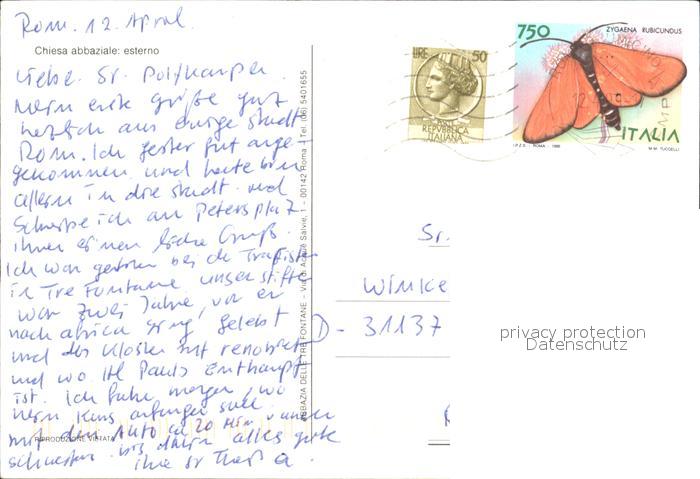 Rom. 12. April.
Chiesa abbaziale: esterno
Liebe Sr.
mein erste grüße gut
herzlich aus ewige Stadt
Rom. Ich gester gut ange
gekommen und heute bin
allein in die Stadt und
schreibe ich am Petersplatz
ihnen einen liebe Gruß.
Ich war gestern bei de Trapisten
in Tre Fontane, unser Stifter
war zwei Jahre, vor er
nach Africa ging, gelebt
und das Kloster mit renoviert
und wo Hl Pauls Enthaupt
ist. Ich fahre morgen, wo
mein Kurs anfangen soll.
mit dem Auto ca 20 Min
schwester bis dahin alles gute
ihre Sr
RIPRODUZIONE VIETATA
ABBAZIA DELLE TRE FONTANE - Via di Acque Salvie, 1 - 00142 Roma - Tel. (06) 5401655
LIRE 50
REPVBBLICA
ITALIANA
750
ZYGAENA RUBICUNDUS
ITALIA
I.P.Z.S. - ROMA - 1996
M.M. TUCCELLI
Sr.
Winke
D-31137
privacy protection
Datenschutz